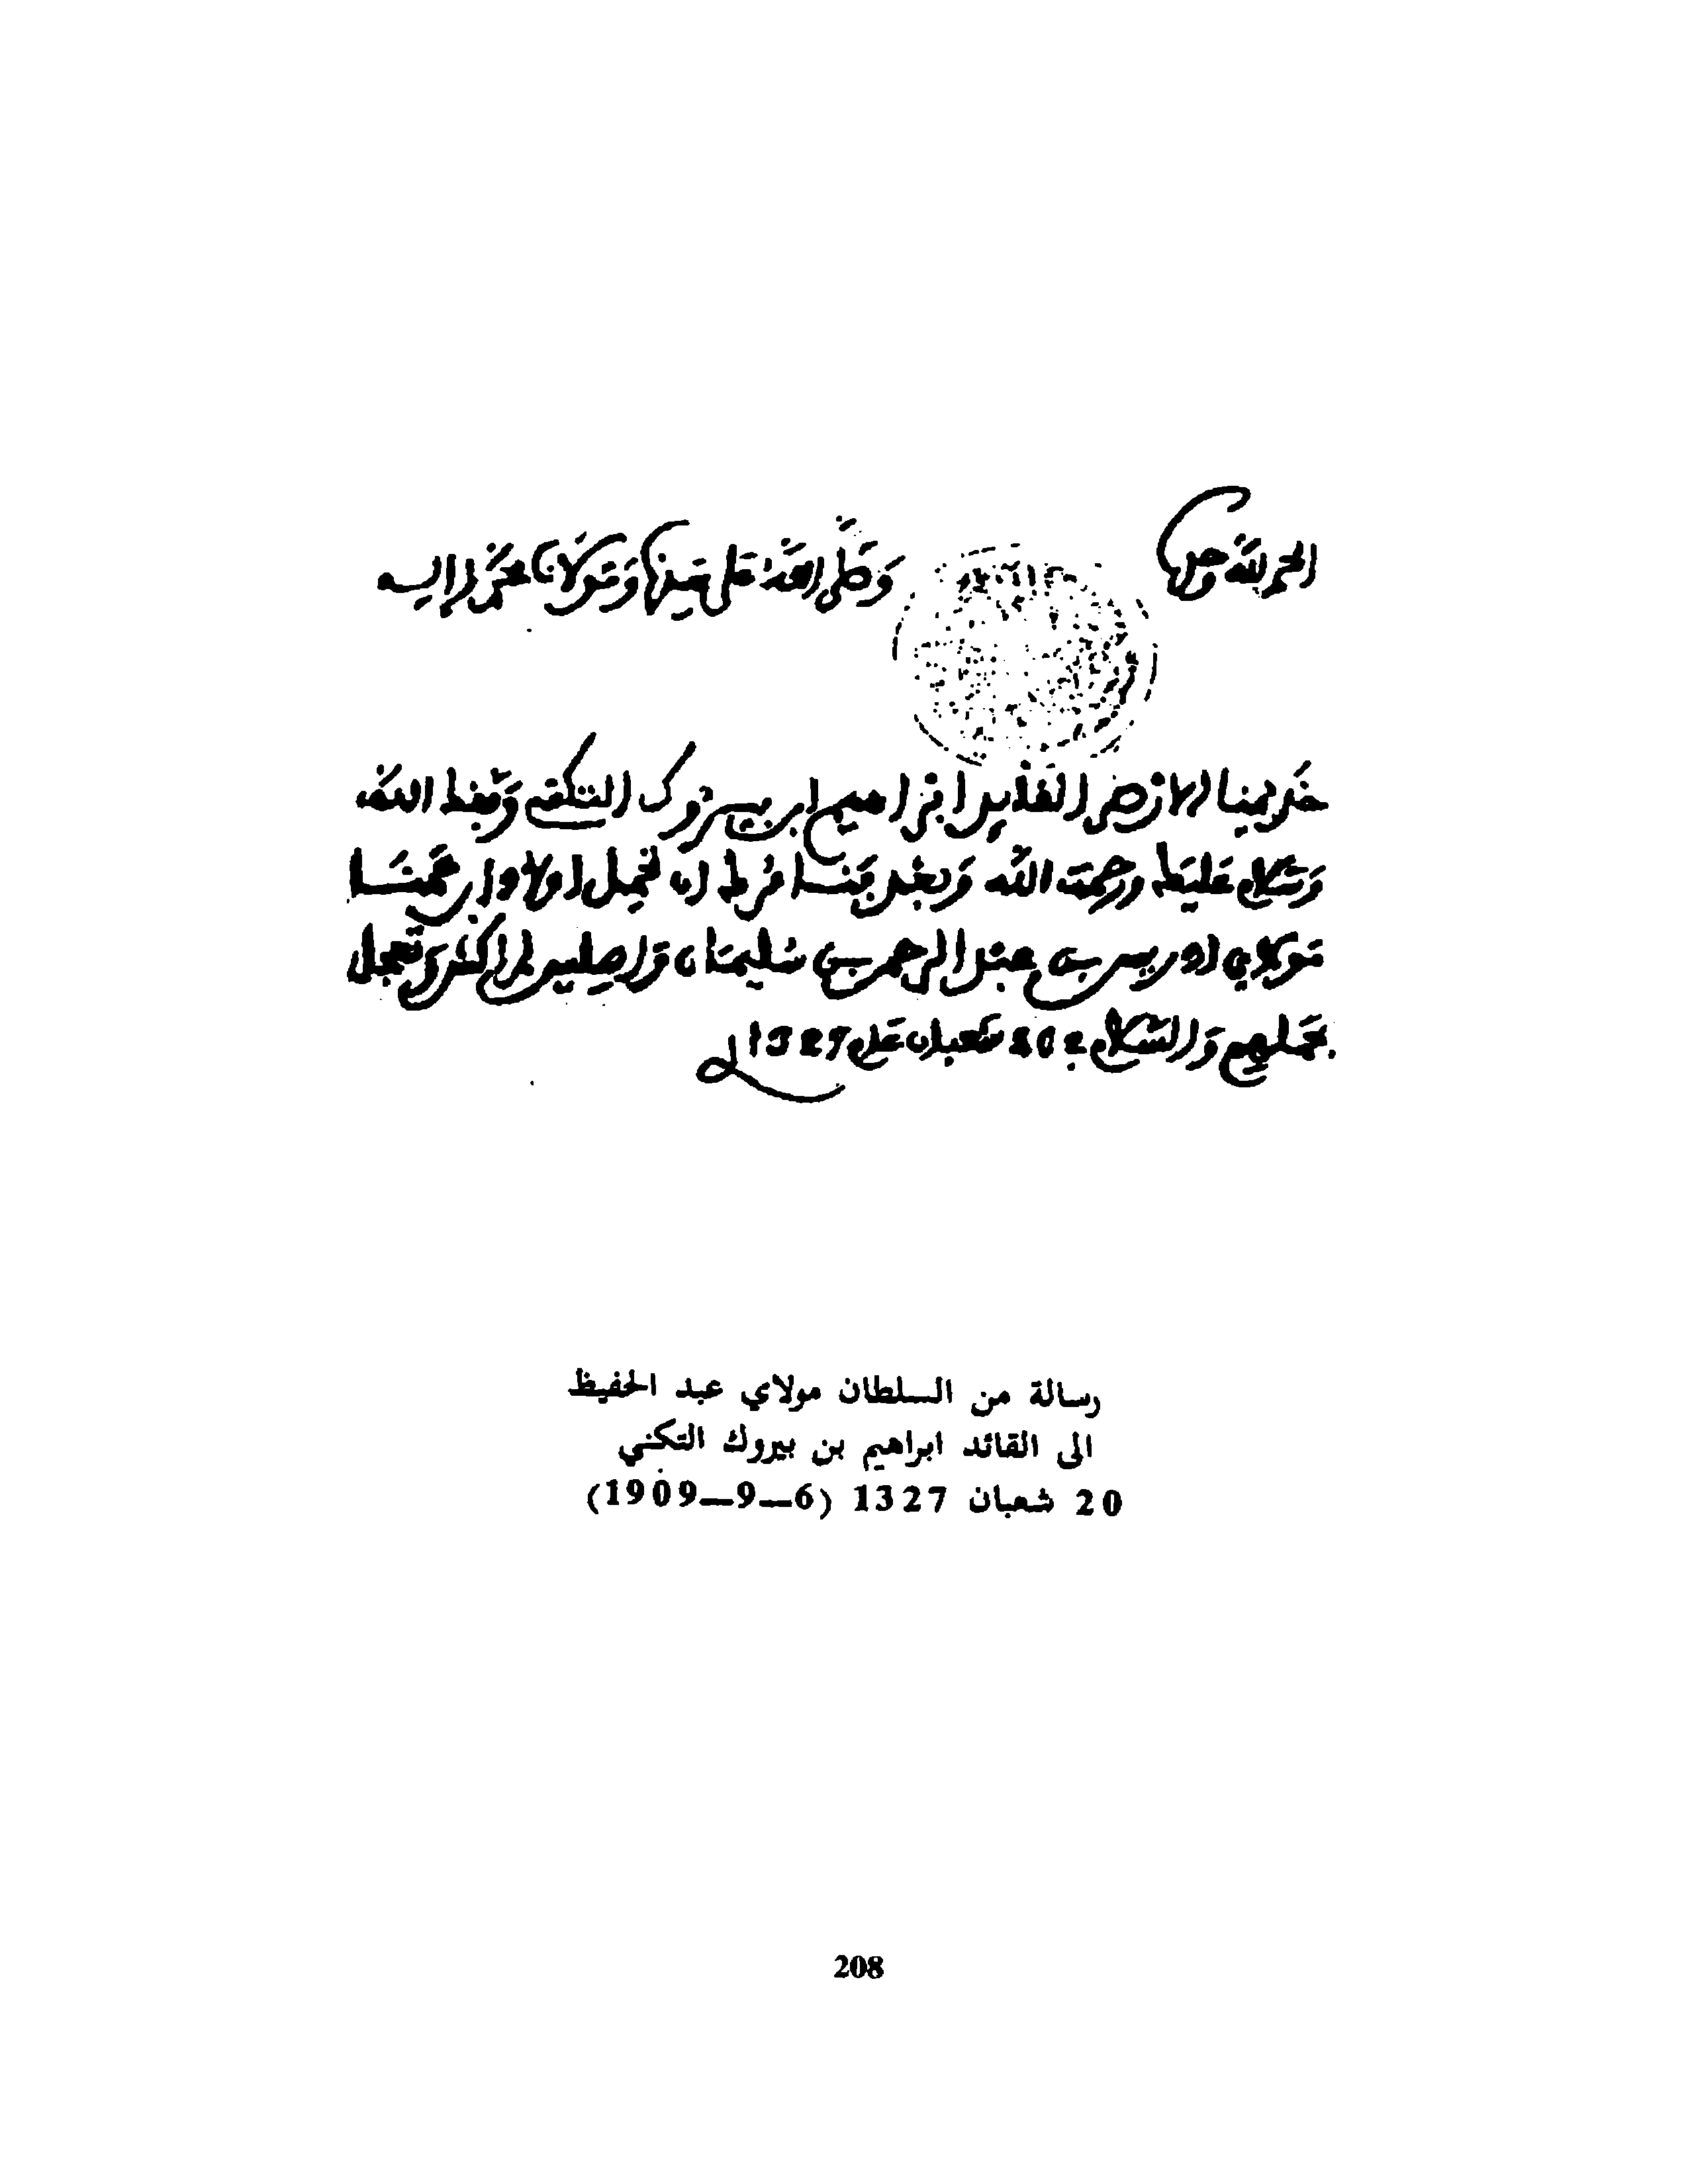 الحمد لله وحده
وصلى الله على سيدنا ومولانا محمد وآله
خديمنا الارضى القايد ابراهيم ابن بيروك التكني وفقك الله
وسلام عليك ورحمة الله وبعد فنامرك ان تحمل اولاد ابن عمنا
مولاي ادريس بن عبد الرحمن بن سليمان واصليهم وتعجل
بحملهم والسلام 20 شعبان عام 1327
رسالة من السلطان مولاي عبد الحفيظ
الى القائد ابراهيم بن بيروك التكني
20 شعبان 1327 (6—9—1909)
208